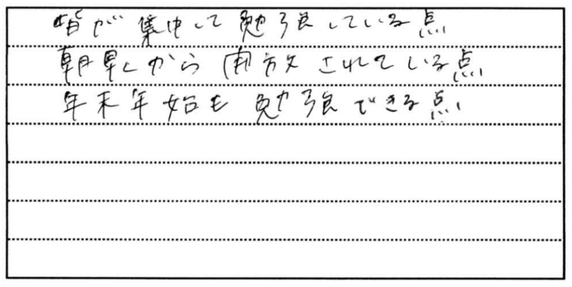 皆が集中して勉強している点
朝早くから開放されている点
年末年始も勉強できる点